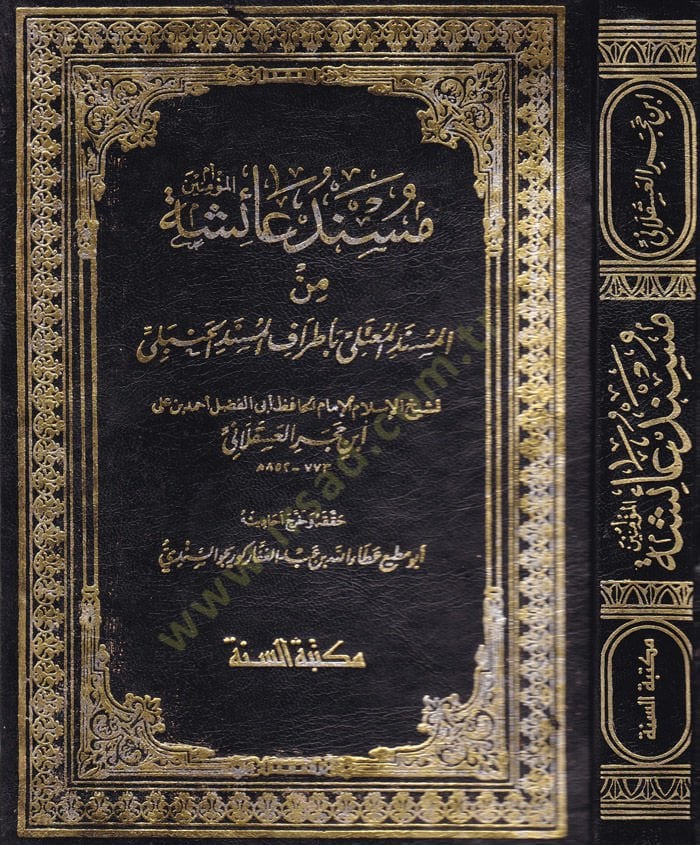 مُسْنَدُ عَائِشَة أم المؤمنين
مِنْ
المُسْنَدِ المُعْتَلِي بأطرافِ المُسْنَدِ الحَنْبَلِي
لشيخ الإسلام الإمام الحافظ أبي الفضل أحمد بن علي
ابن حجر العسقلاني
٧٧٣ - ٨٥٢ هـ
حققه وخرج أحاديثه
أبو مطيع عطاء الله بن عبد الغفار كوريجو السندي
مكتبة السنة
ابن حجر العسقلاني
مُسْنَدُ عَائِشَة أم المؤمنين
مكتبة السنة